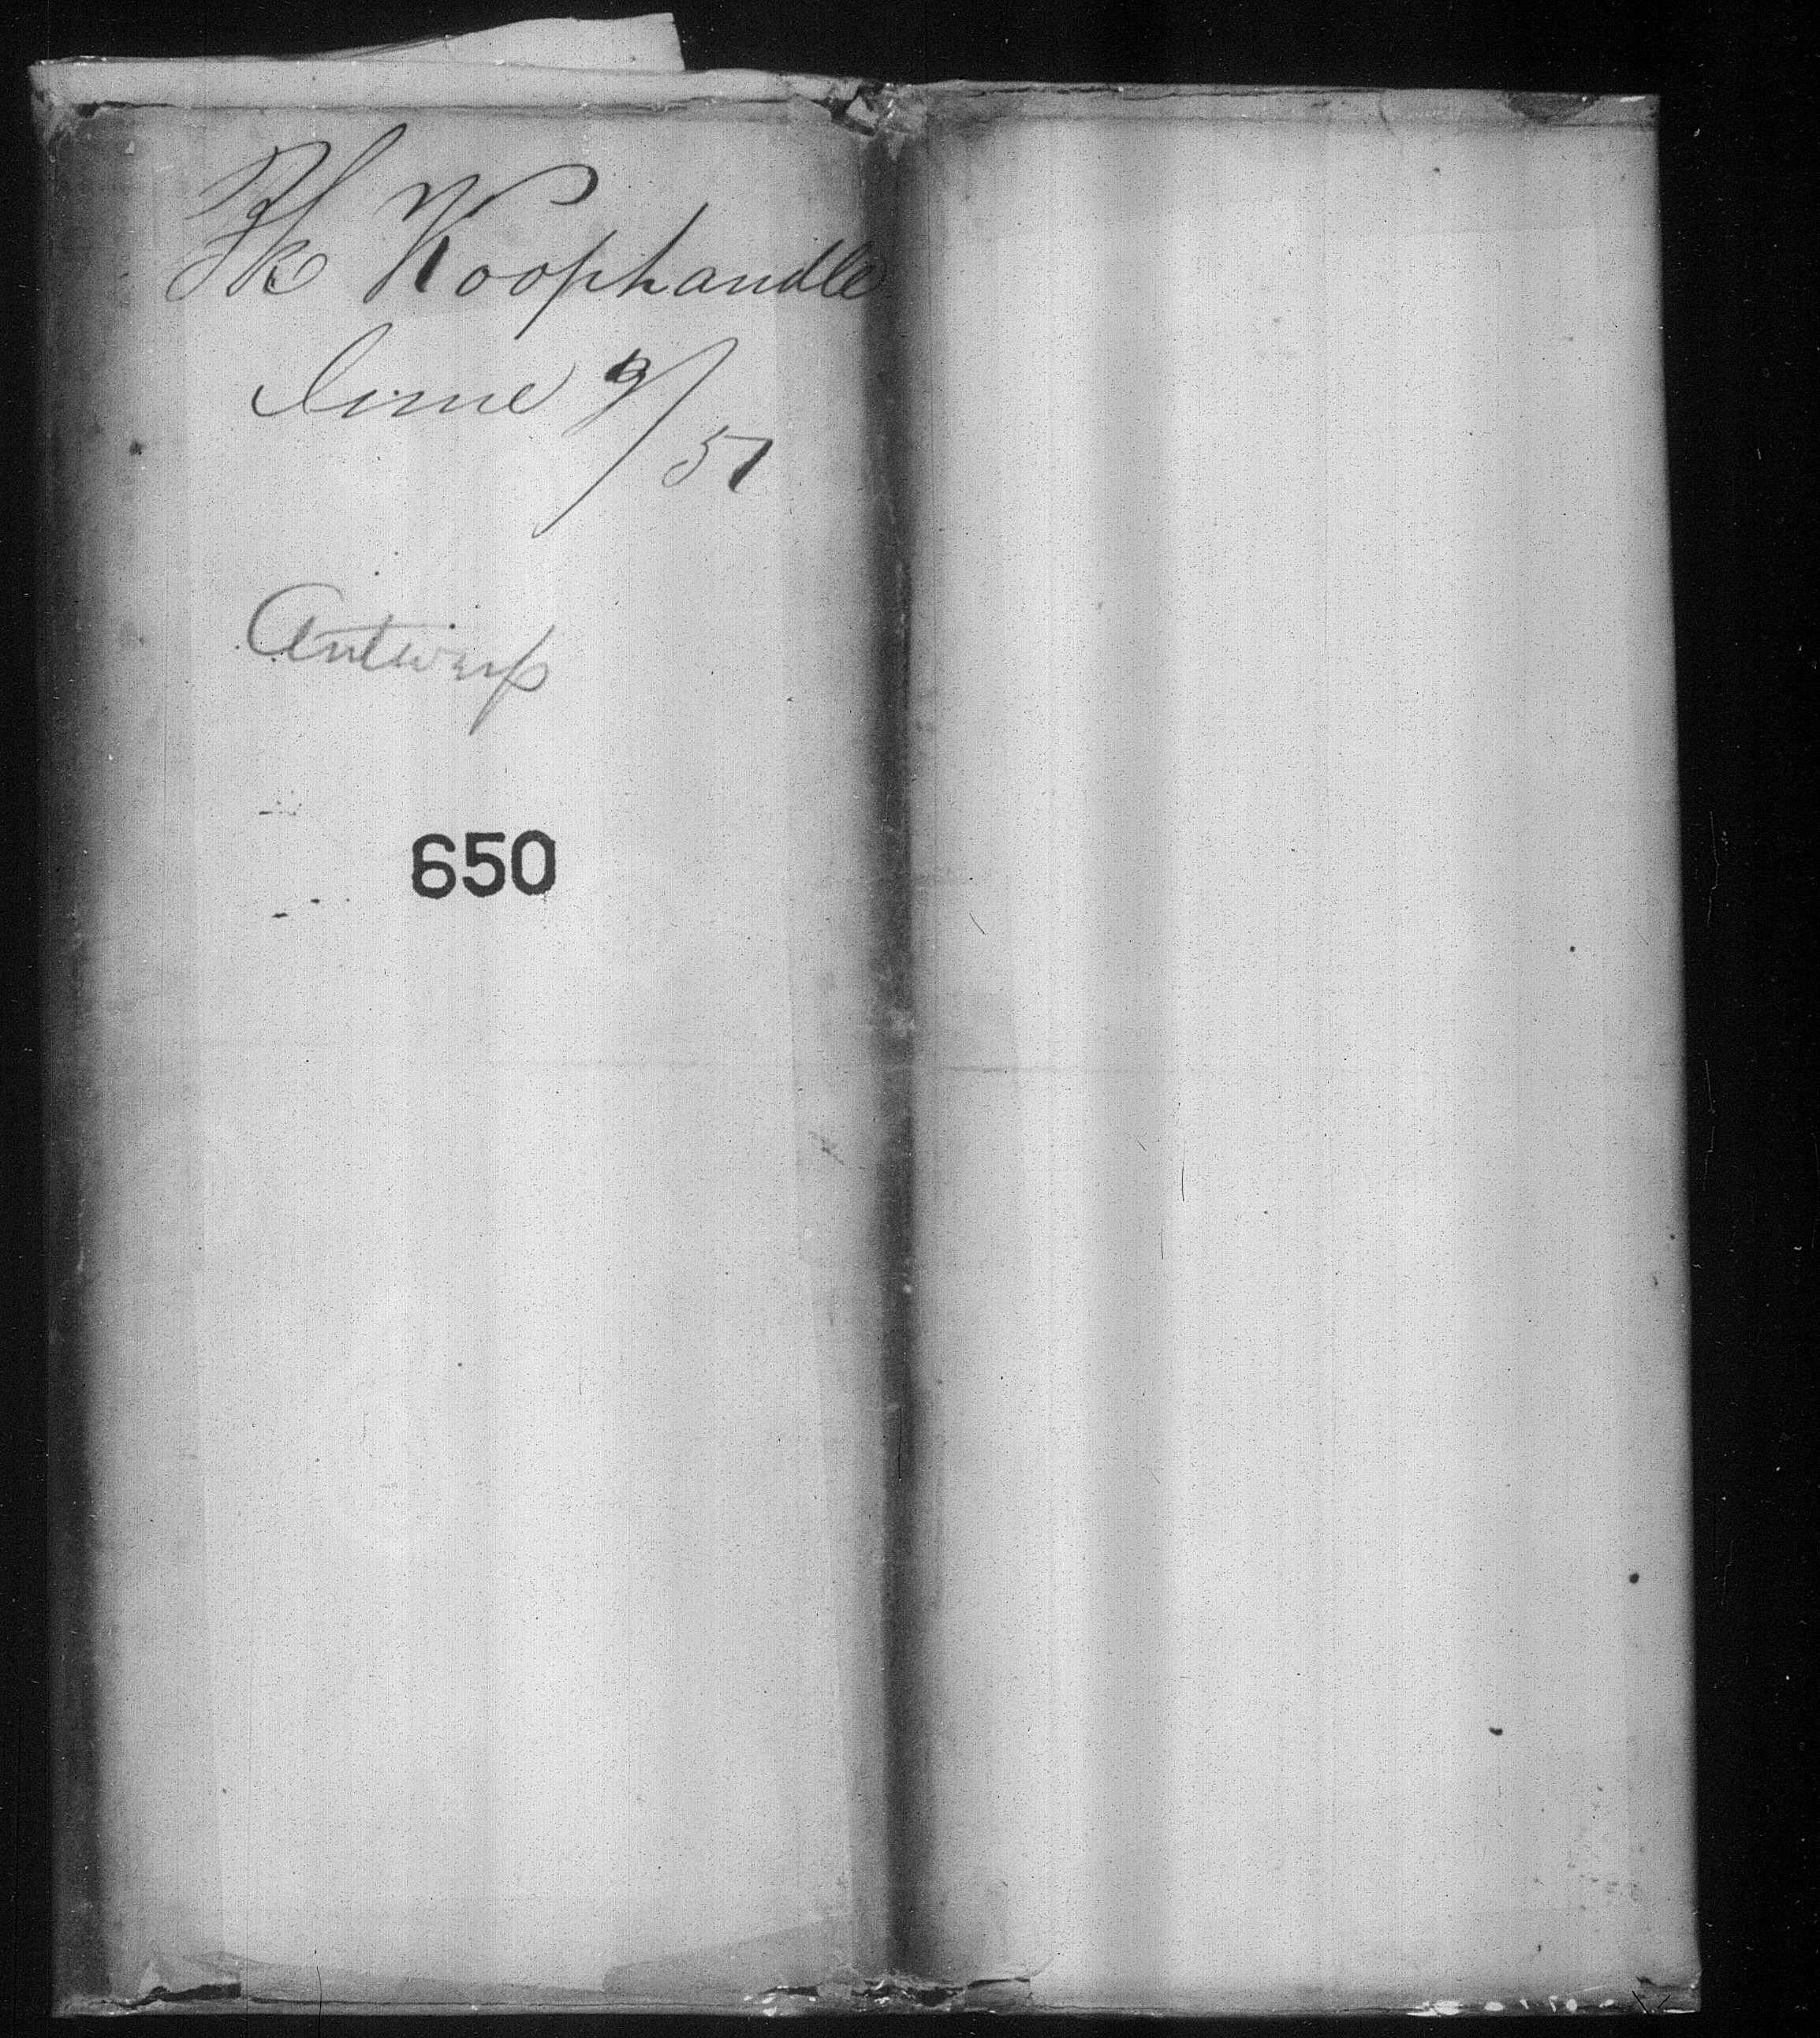 Bk Koophandle
June 9/51
Antwerp
650